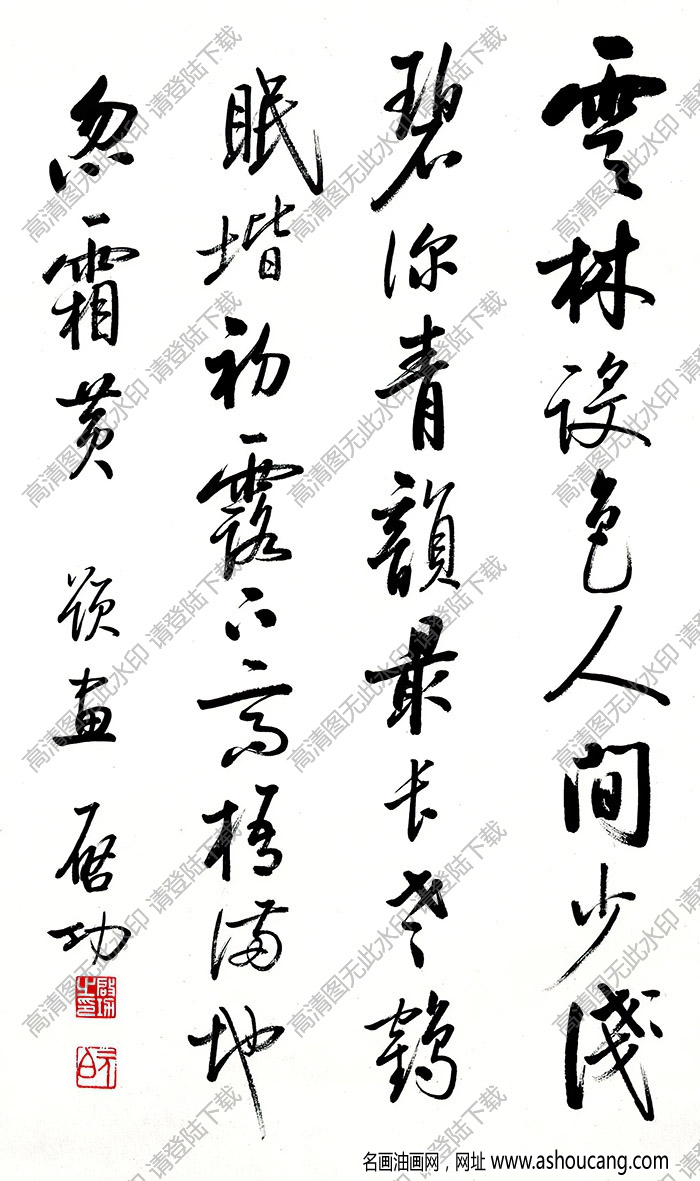 雲林設色人間少淺
碧深青韻最长老鶴
眠堦初露下高梧满地
忽霜黄 题画 启功
启功之印
元白
高清图无此水印 请登陆下载
名画油画网，网址 www.ashoucang.com